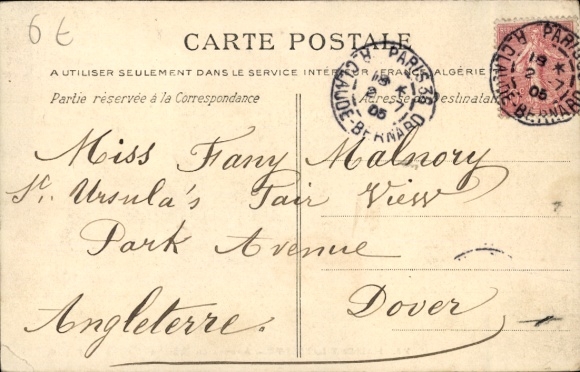 6 £
CARTE POSTALE
A UTILISER SEULEMENT DANS LE SERVICE INTÉRIEUR FRANCE ALGÉRIE
Partie réservée à la Correspondance
Adresse du Destinataire
PARIS 36
18 *
2 - 7
05
R. CLAUDE-BERNARD
PARIS
18 *
2 - 7
05
R. CLAUDE-BERNARD
Miss Fany Malnory
St. Ursula's Fair View
Park Avenue
Dover
Angleterre.